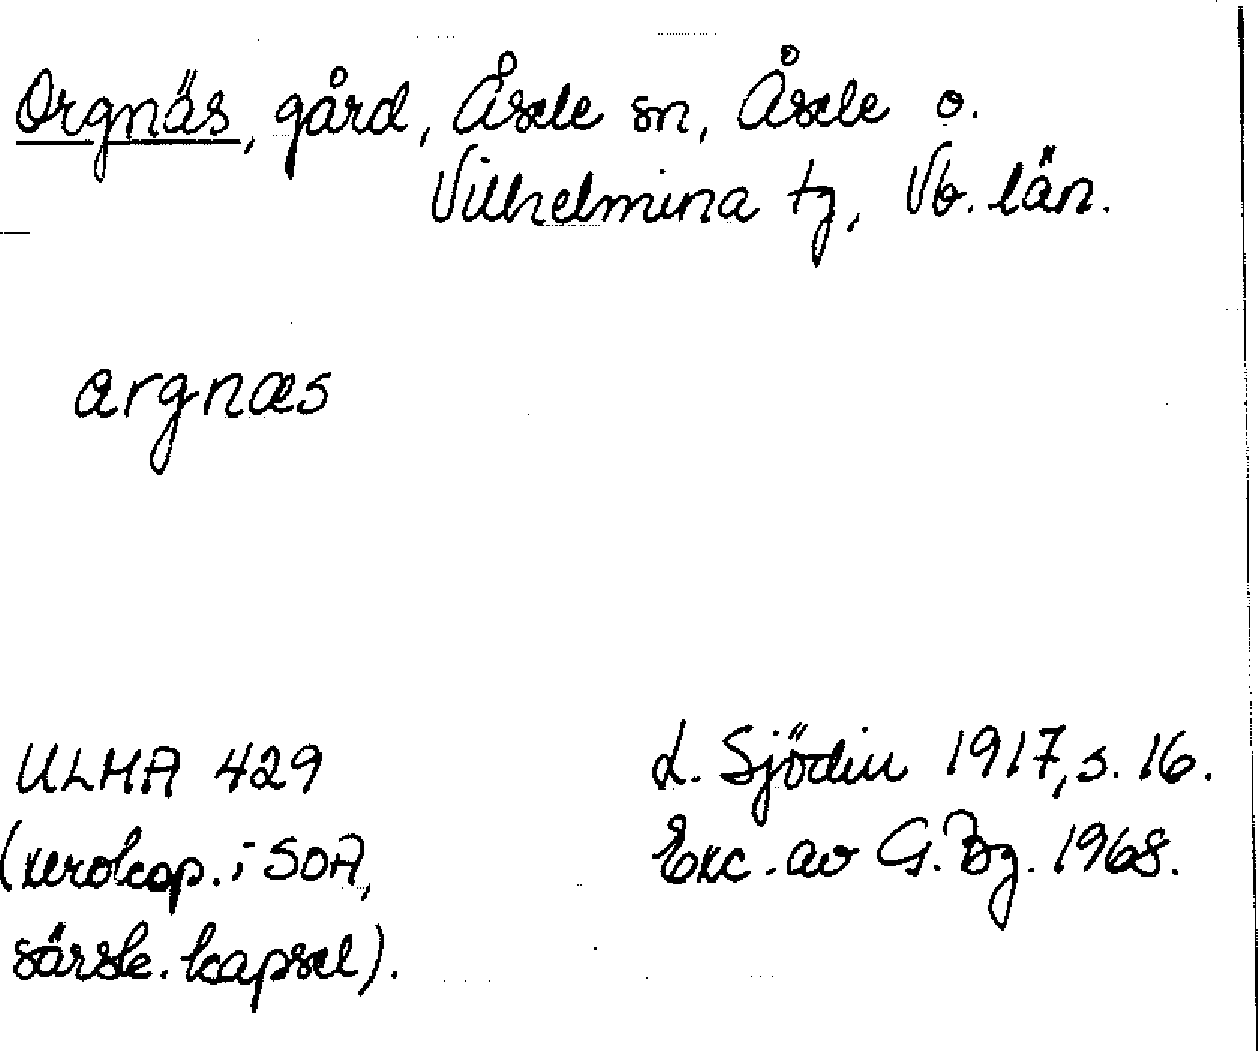 Orgnäs, gård, Åsele sn, Åsele o.
Vilhelmina tg, Vb. län.
argnæs
ULMA 429
(xerokop. i SOA,
särsk. kapsel).
L. Sjödin 1917, s. 16.
Exc. av G. Bg. 1968.